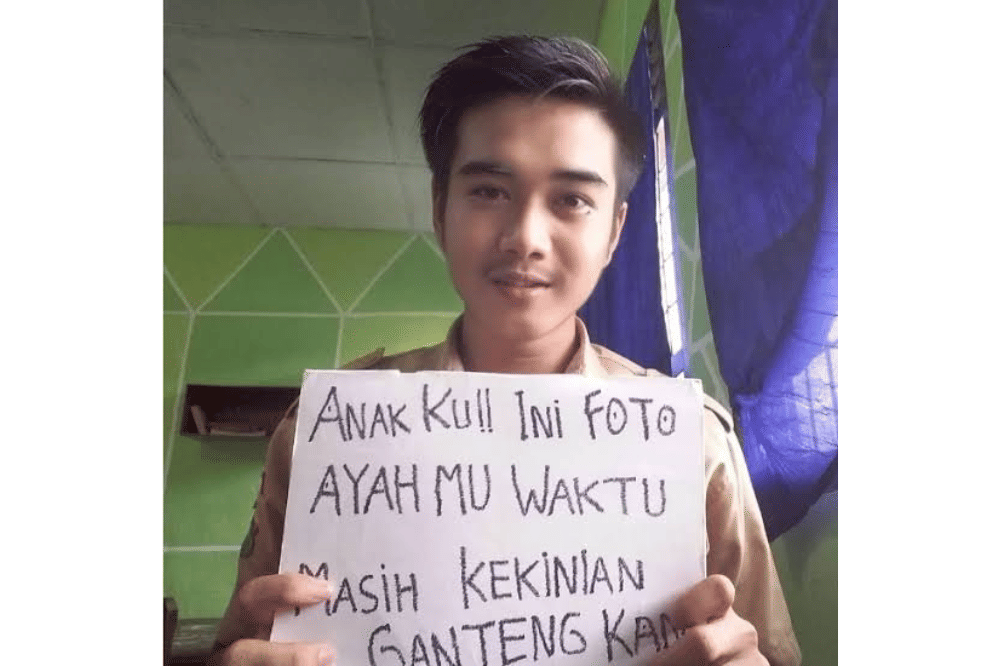 ANAK KU!! INI FOTO
AYAH MU WAKTU
MASIH KEKINIAN
GANTENG